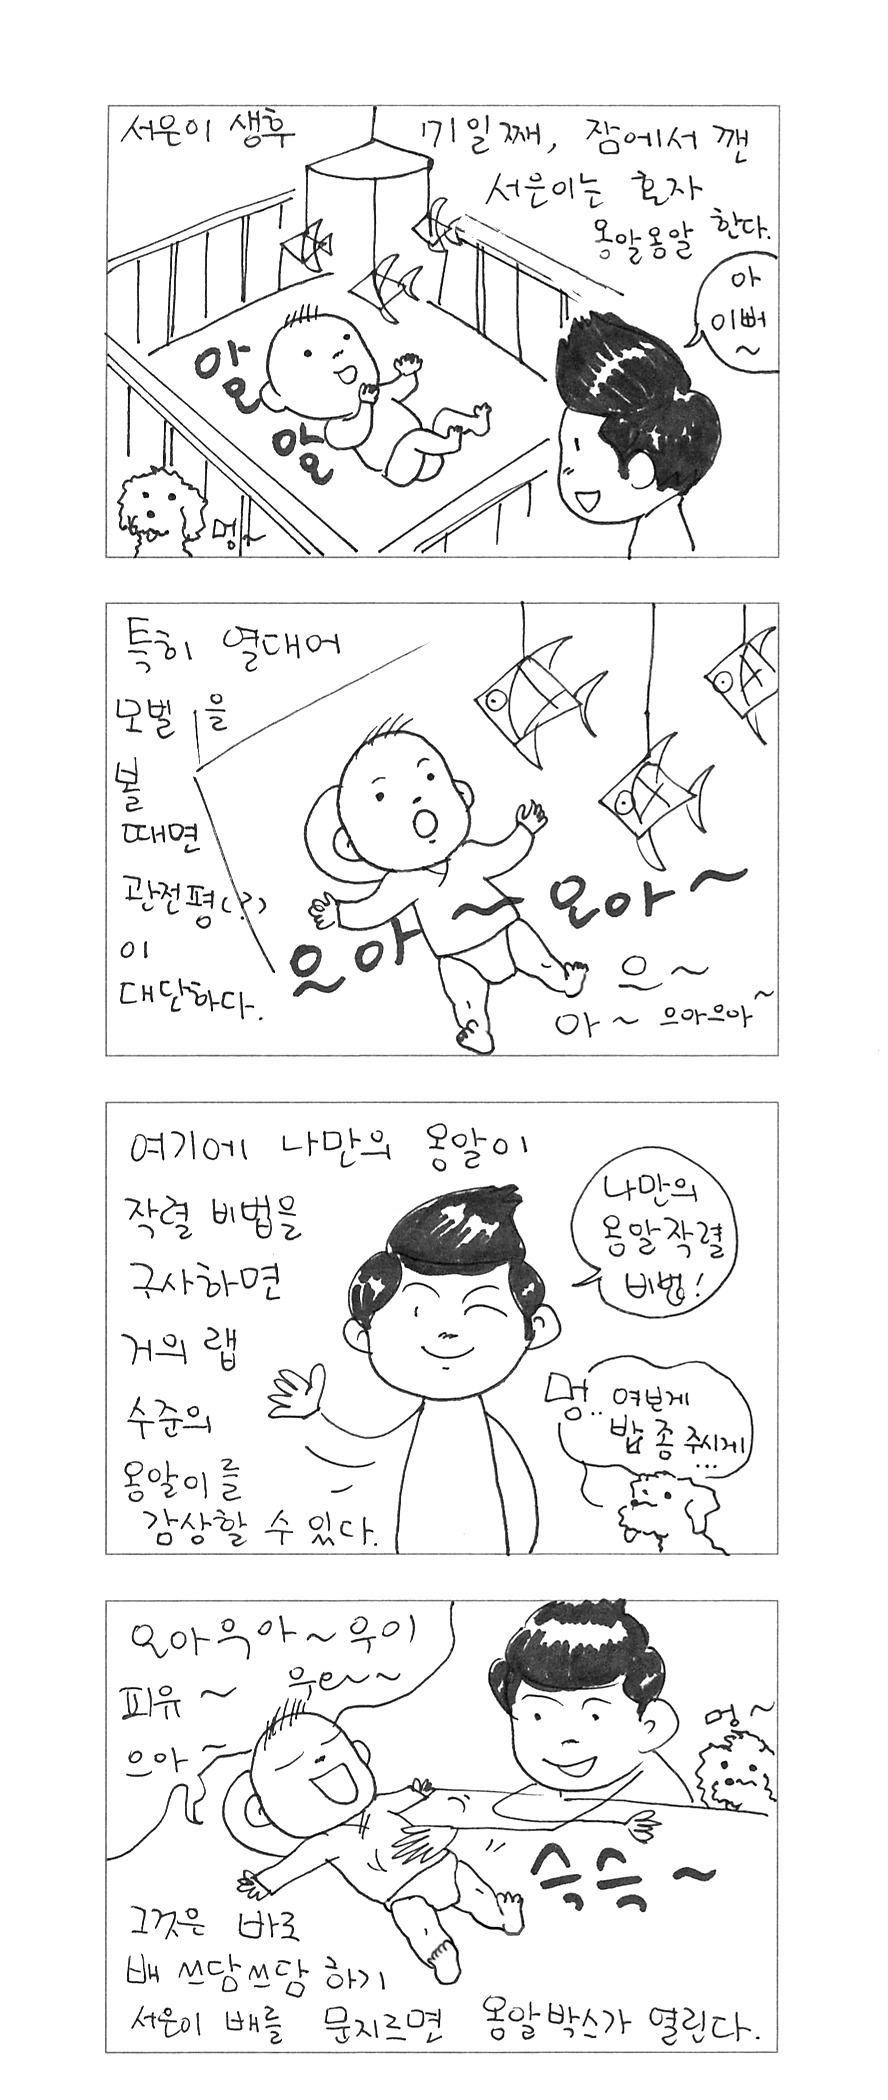 서은이 생후 171일째, 잠에서 깬
서은이는 혼자
옹알옹알 한다.
아
이뻐
~
알
알
멍~
특히 열대어
모벨을
볼
때면
관전평(?)
이
대단하다.
으아~ 오아~
으~
아~ 으아으아~
여기에 나만의 옹알이
작렬 비법을
구사하면
거의 랩
수준의
옹알이를
감상할 수 있다.
나만의
옹알작렬
비법!
멍.. 여보게
밥 좀 주시게
...
오아우아~우이
피유~ 우e~~
으아~
멍~
슥슥~
그것은 바로
배 쓰담쓰담 하기
서은이 배를 문지르면 옹알박스가 열린다.